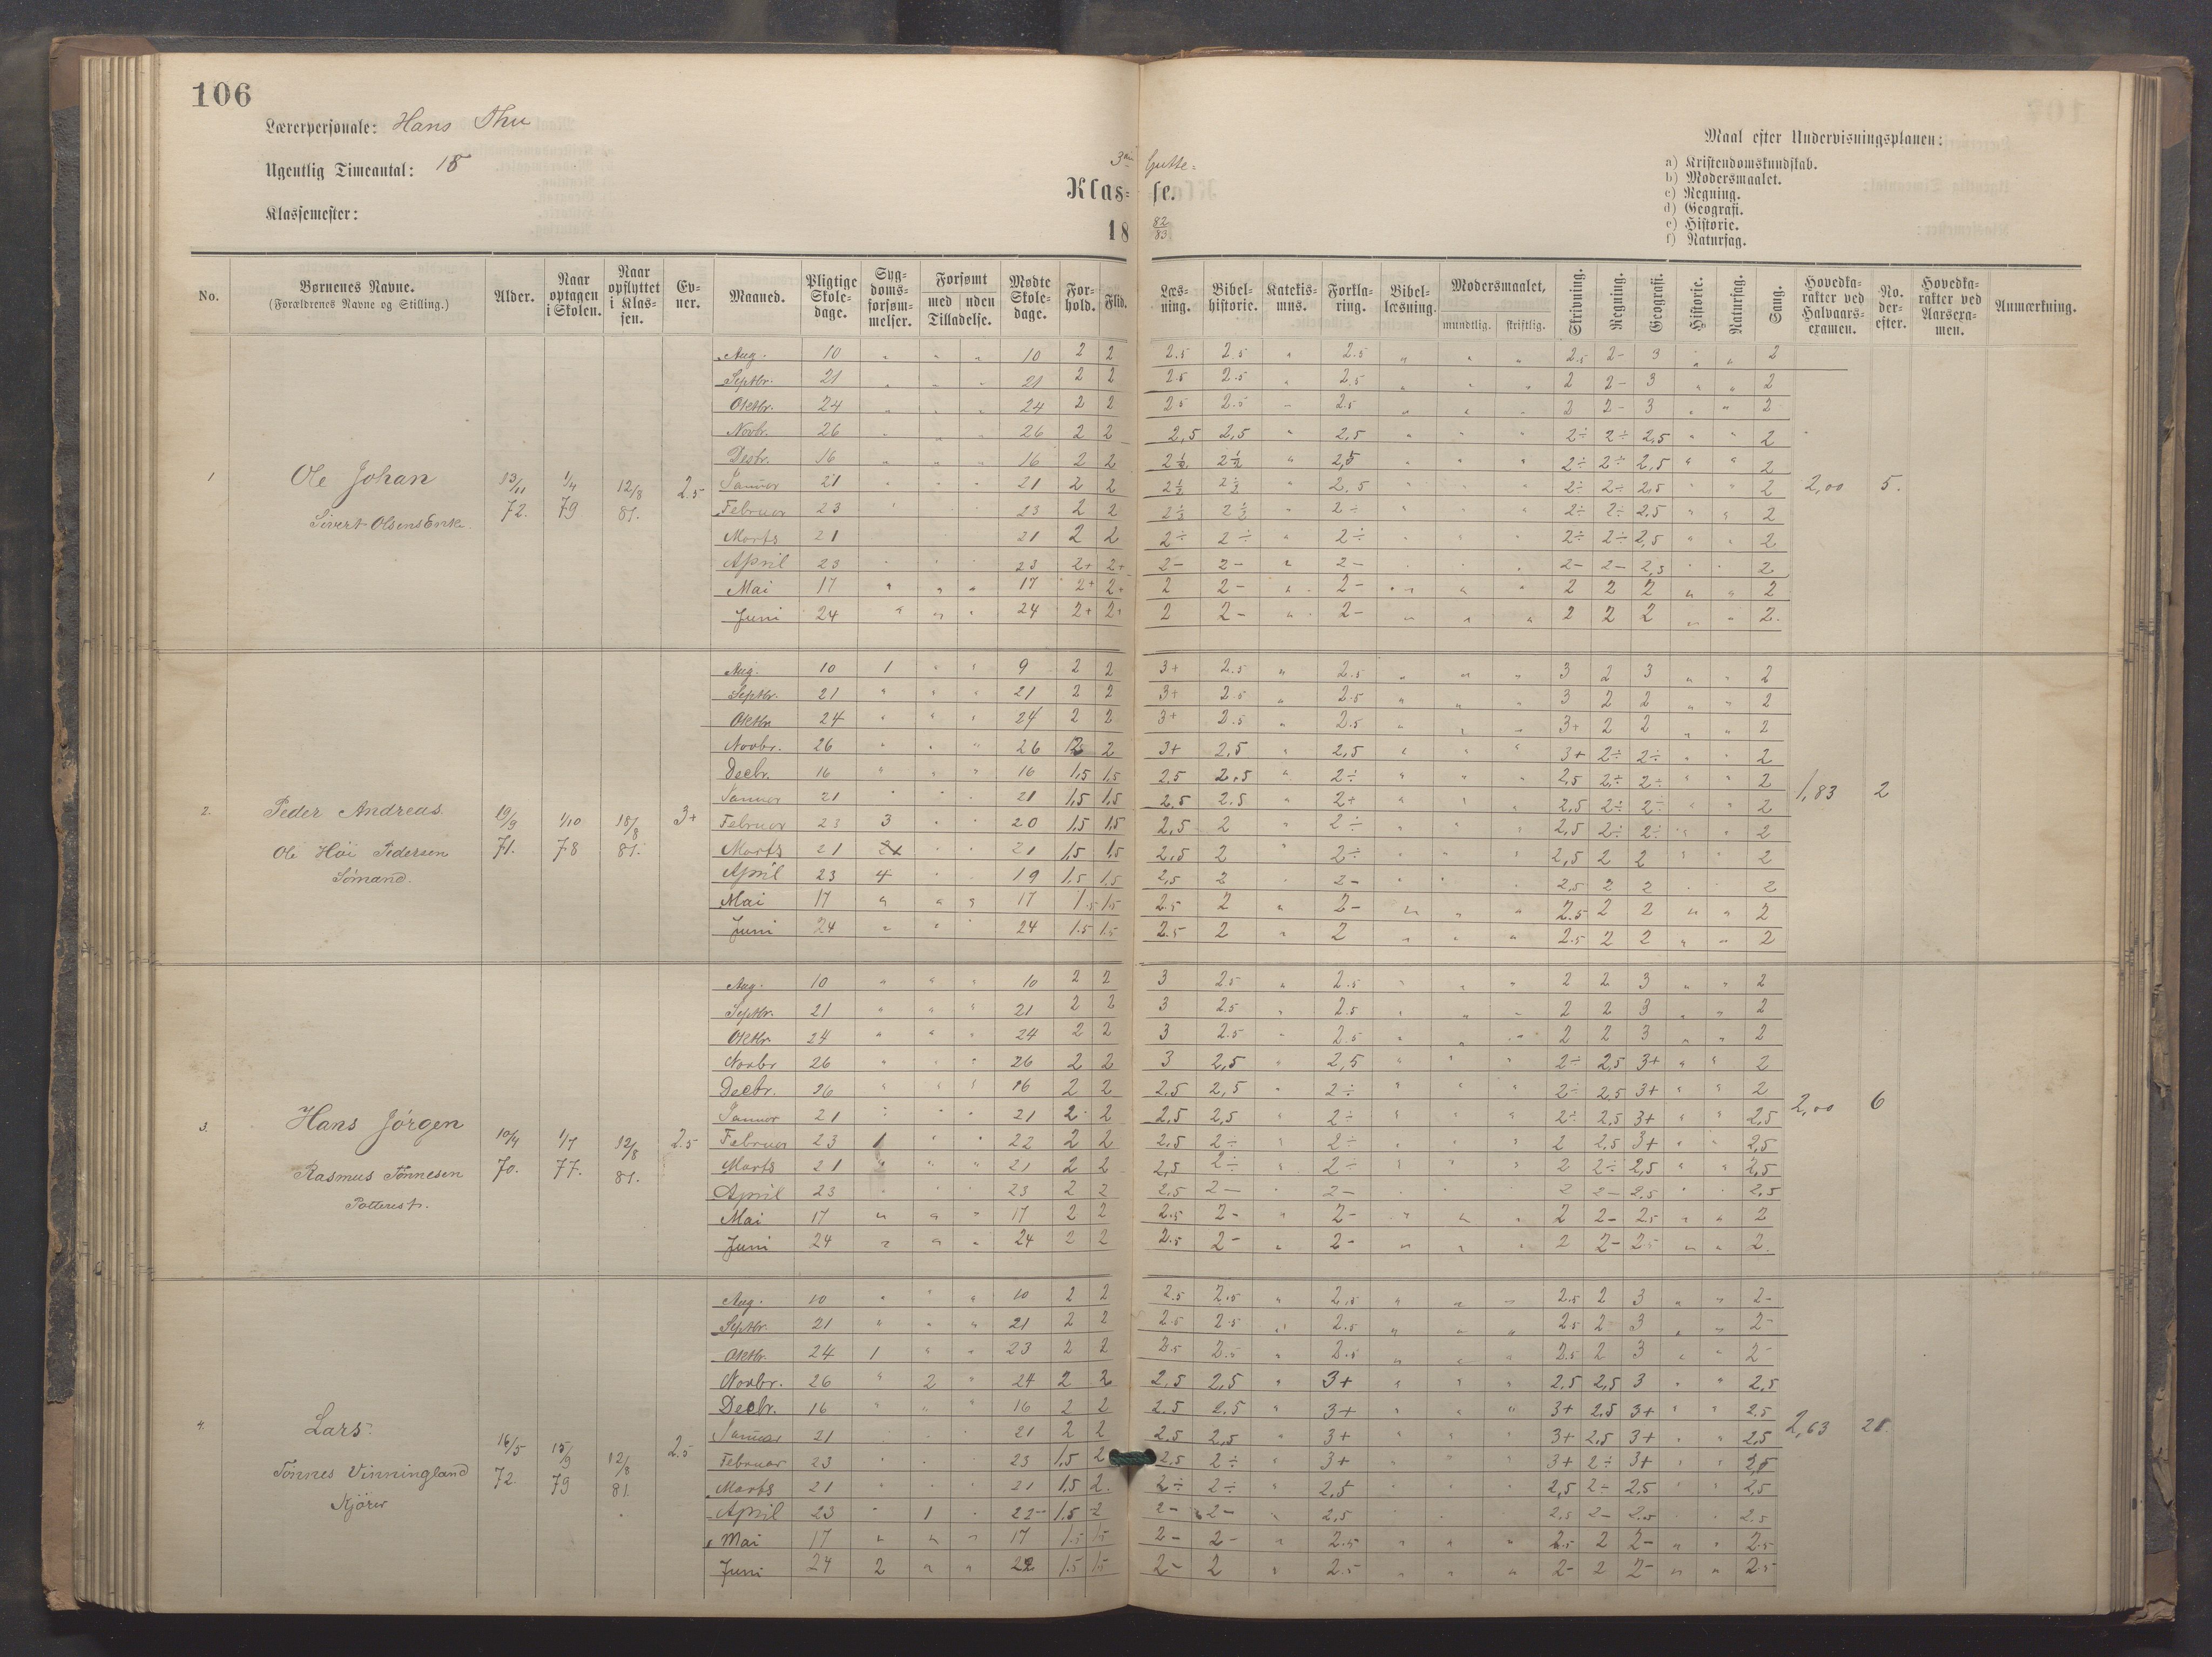 106
Lærerpersonale: Hans Thu
Ugentlig Timeantal: 18
Klassemester:
3die Gutte=
Klas= se.
18 82/83
Maal efter Undervisningsplanen:
a) Kristendomskundskab.
b) Modersmaalet.
c) Regning.
d) Geografi.
e) Historie.
f) Naturfag.
No. | Børnenes Navne. (Forældrenes Navne og Stilling.) | Alder. | Naar optagen i Skolen. | Naar opflyttet i Klassen. | Evner. | Maaned. | Pligtige Skoledage. | Sygdomsforsømmelser. | Forsømt med Tilladelse. | uden Tilladelse. | Mødte Skoledage. | Forhold. | Flid. | Læsning. | Bibelhistorie. | Katekismus. | Forklaring. | Bibellæsning. | Modersmaalet, mundtlig. | skriftlig. | Skrivning. | Regning. | Geografi. | Historie. | Naturfag. | Sang. | Hovedkarakter ved Halvaarsexamen. | No. derefter. | Hovedkarakter ved Aarsexamen. | Anmærkning.
1 Ole Johan 13/11 72. 1/4 79 12/8 81. 2.5 2,00 5.
Sivert Olsens Enke.
Aug. 10 " " " 10 2 2 2.5 2.5 " 2.5 " " " 2.5 2- 3 " " 2
Septbr. 21 " " " 21 2 2 2.5 2.5 " 2.5 " " " 2 2- 3 " " 2
Oktbr. 24 " " " 24 2 2 2.5 2.5 " 2.5 " " " 2 2- 3 " " 2
Novbr. 26 " " " 26 2 2 2,5 2,5 " 2,5 " " " 2÷ 2÷ 2,5 " " 2
Decbr. 16 " " " 16 2 2 2½ 2½ " 2,5 " " " 2÷ 2÷ 2,5 " " 2
Januar 21 " " " 21 2 2 2½ 2½ " 2,5 " " " 2÷ 2÷ 2,5 " " 2
Februar 23 " " " 23 2 2 2½ 2½ " 2÷ " " " 2÷ 2÷ 2.5 " " 2
Marts 21 21 2 2 2÷ 2÷ " 2÷ " " " 2÷ 2÷ 2,5 " " 2
April 23 " " " 23 2+ 2+ 2- 2- " 2- " " " 2- 2- 2,5 " " 2
Mai 17 " " " 17 2+ 2+ 2 2- " 2- " " " 2 2 2 " " 2
Juni 24 " " " 24 2+ 2+ 2 2- " 2- " " " 2 2 2 " " 2.
2. Peder Andreas. 19/9 71. 1/10 78 18/8 81. 3+ 1,83 2
Ole Höi Pedersen
Sömand.
Aug. 10 1 " " 9 2 2 3+ 2.5 " 2.5 " " " 3 2 3 " " 2
Septbr. 21 " " " 21 2 2 3+ 2.5 " 2.5 " " " 3 2 2 " " 2
Oktbr. 24 " " " 24 2 2 3+ 2.5 " 2.5 " " " 3+ 2 2 " " 2
Novbr. 26 " " " 26 2 2 3+ 2,5 " 2,5 " " " 3+ 2÷ 2÷ " " 2
Decbr. 16 " " " 16 1,5 1,5 2,5 2,5 " 2÷ " " " 2,5 2÷ 2÷ " " 2
Januar 21 " " " 21 1,5 1,5 2,5 2.5 " 2+ " " " 2,5 2÷ 2÷ " " 2
Februar 23 3 " " 20 1,5 1,5 2,5 2 " 2÷ " " " 2,5 2÷ 2÷ " " 2
Marts 21 " " 21 1,5 1,5 2,5 2 " 2÷ " " " 2,5 2 2 " " 2
April 23 4 " " 19 1,5 1,5 2,5 2 " 2- " " " 2,5 2 2 " " 2
Mai 17 " " " 17 1.5 1.5 2.5 2 " 2- " " " 2.5 2 2 " " 2
Juni 24 " " 24 1.5 1.5 2.5 2 " 2 " " " 2.5 2 2 " " 2
3. Hans Jörgen 10/4 70. 1/7 77. 12/8 81. 2.5 2,00 6
Rasmus Tönnesen
Aug. 10 " " " 10 2 2 3 2.5 " 2.5 " " " 2 2 3 " " 2
Septbr. 21 " " " 21 2 2 3 2.5 " 2.5 " " " 2 2 3 " " 2
Oktbr. 24 " " " 24 2 2 3 2.5 " 2.5 " " " 2 2 3 " " 2
Novbr 26 " " " 26 2 2 3 2,5 " 2,5 " " " 2÷ 2,5 3+ " " 2
Decbr. 16 " " " 16 2 2 2,5 2,5 " 2÷ " " " 2÷ 2,5 3+ " " 2
Januar 21 " " " 21 2 2 2,5 2,5 " 2÷ " " " 2÷ 2,5 3+ " " 2,5
Februar 23 1 " " 22 2 2 2,5 2÷ " 2÷ " " " 2 2,5 3+ " " 2,5
Marts 21 " " " 21 2 2 2,5 2÷ " 2÷ " " " 2 2÷ 2,5 " " 2,5
April 23 " " " 23 2 2 2.5 2- " 2- " " " 2 2- 2.5 " " 2,5
Mai 17 " " " 17 2 2 2.5 2- " 2- " " " 2 2- 2.5 " " 2
Juni 24 " " " 24 2 2 2.5 2- " 2- " " " 2 2- 2.5 " " 2.
4. Lars. 16/5 72. 15/9 79 12/8 81. 2.5 2,63 21.
Tönnes Vinningland
Aug. 10 " " " 10 2 2 2.5 2.5 " 2.5 " " " 2.5 2 3 " " 2-
Septbr. 21 " " " 21 2 2 2.5 2.5 " 2.5 " " " 2.5 2 3 " " 2-
Oktbr. 24 1 " " 23 2 2 2.5 2.5 " 2.5 " " " 2.5 2 3 " " 2-
Novbr. 26 " 2 " 24 2 2 2.5 2,5 " 3+ " " " 2,5 2,5 3 " " 2,5
Decbr. 16 " " " 16 2 2 2.5 2.5 " 3+ " " " 3+ 2,5 3+ " " 2.5
Januar 21 21 2 2 2,5 2,5 " 3+ " " " 3+ 2,5 3+ " " 2,5
Februar 23 " " " 23 1,5 2 2,5 2÷ " 3+ " " " 3+ 2÷ 3+ " " 2,5
Marts 21 " " " 21 1,5 2. 2÷ 2÷ " 2,5 " " " 2,5 2÷ 2,5 " " 2,5
April 23 " 1 " 22 1,5 2 2- 2- " 2,5 2,5 2- 2.5 " " 2.5
Mai 17 " " " 17 1.5 1.5 2- 2- " 2.5 " " " 2.5 2 2- " " 2.5
Juni 24 2 " " 22 1.5 1.5 2- 2 " 2.5 " " " 2- 2 2- " " 2.5